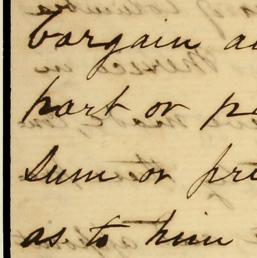 bargain a
part or p
Sum or pri
as to him